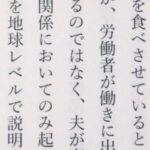 を食べさせていると
が、労働者が働きに出
るのではなく、夫が
関係においてのみ起
を地球レベルで説明